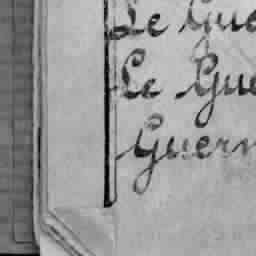 Le Gue
Le Gue
Guern